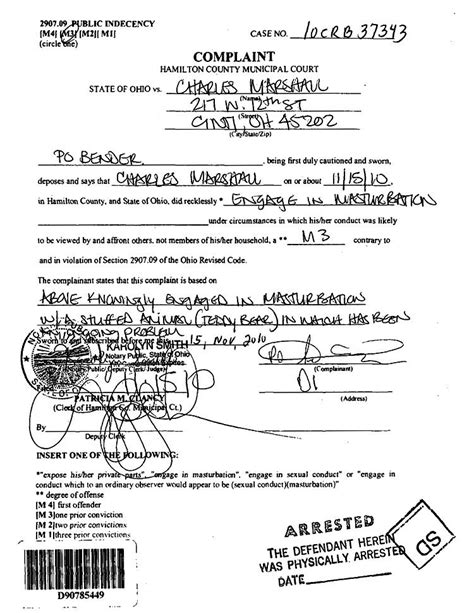 2907.09 PUBLIC INDECENCY
[M4] [M3] [M2][ M1]
(circle one)
CASE NO. 10CRB37343
COMPLAINT
HAMILTON COUNTY MUNICIPAL COURT
STATE OF OHIO vs. CHARLES MARSHALL
(Name)
217 W. 12th ST
(Street)
CINTI, OH 45202
(City/State/Zip)
PO BENDER, being first duly cautioned and sworn,
deposes and says that CHARLES MARSHALL on or about 11/15/10,
in Hamilton County, and State of Ohio, did recklessly * ENGAGE IN MASTURBATION
under circumstances in which his/her conduct was likely
to be viewed by and affront others, not members of his/her household, a ** M3 contrary to
and in violation of Section 2907.09 of the Ohio Revised Code.
The complainant states that this complaint is based on
ABOVE KNOWINGLY ENGAGED IN MASTURBATION
W/A STUFFED ANIMAL (TEDDY BEAR) IN WHICH HAS BEEN
AN ONGOING PROBLEM
Sworn to and subscribed before me this 15, Nov, 2010
KAROLYN SMITH
Notary Public, State of Ohio
PO
(Complainant)
Notary Public/Deputy Clerk/Judge
D1
(Address)
PATRICIA M. CLANCY
(Clerk of Hamilton Co. Municipal Ct.)
By
Deputy Clerk
INSERT ONE OF THE FOLLOWING:
*"expose his/her private parts", "engage in masturbation", "engage in sexual conduct" or "engage in
conduct which to an ordinary observer would appear to be (sexual conduct)(masturbation)"
** degree of offense
[M 4] first offender
[M 3]one prior conviction
[M 2]two prior convictions
[M 1]three prior convictions
ARRESTED
THE DEFENDANT HEREIN
WAS PHYSICALLY ARRESTED
DATE
SD
D90785449